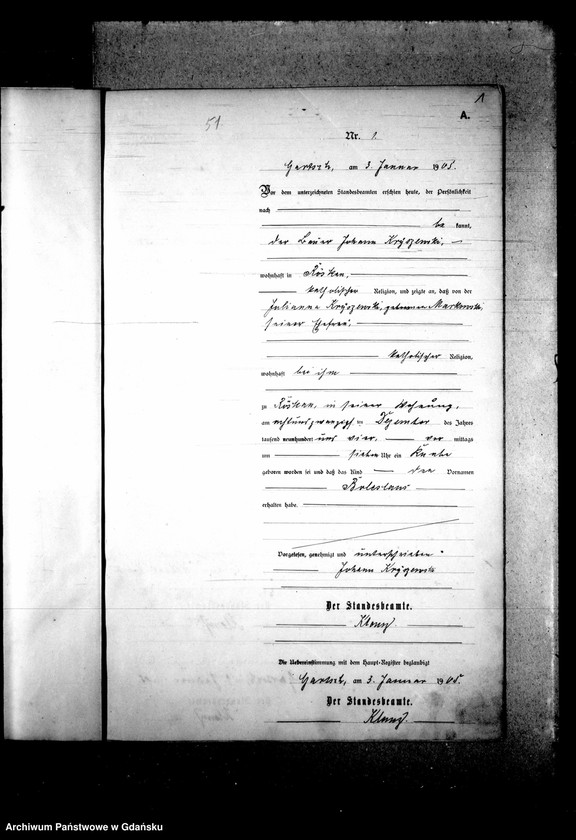 1
A.
51
Nr. 1
Gartsch, am 3. Januar 1905.
Vor dem unterzeichneten Standesbeamten erschien heute, der Persönlichkeit
nach
be kannt,
der Bauer Johann Kryszewski,
wohnhaft in Rösken,
katholischer Religion, und zeigte an, daß von der
Julianna Kryszewski, geborenen Markowski,
seiner Ehefrau,
katholischer Religion,
wohnhaft bei ihm
zu Rösken, in seiner Wohnung,
am achtundzwanzigsten Dezember des Jahres
tausend neunhundert und vier, vor mittags
um sieben Uhr ein Knabe
geboren worden sei und daß das Kind den Vornamen
Boleslaus
erhalten habe.
Vorgelesen, genehmigt und unterschrieben
Johann Kryszewski
Der Standesbeamte.
Die Uebereinstimmung mit dem Haupt-Register beglaubigt
Gartsch, am 3. Januar 1905.
Der Standesbeamte.
Archiwum Państwowe w Gdańsku